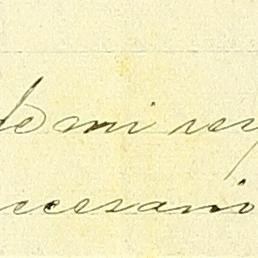 de mi rey
ecesario